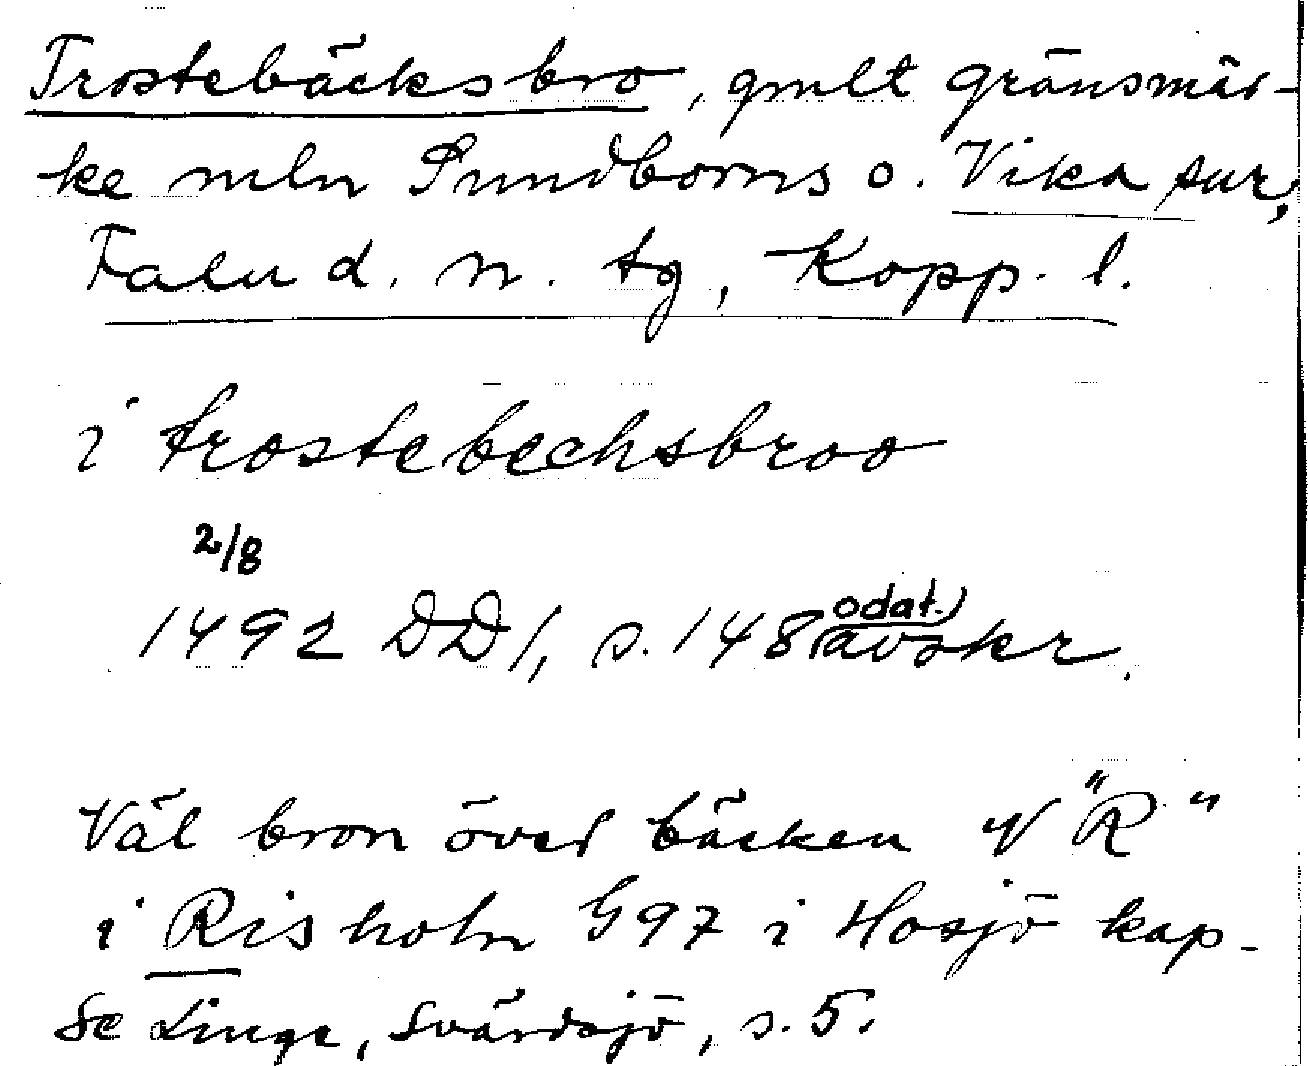 Trostebäcksbro, gmlt gränsmär-
ke mln Sundborns o. Vika snr,
Falu d. n. tg, Kopp. l.
i trostebechsbroo
2/8
1492 DD 1, s. 148 (odat.) avskr.
Väl bron över bäcken N "R"
i Risholn G97 i Hosjö kap-
Se Linge, Svärdsjö, s. 5.